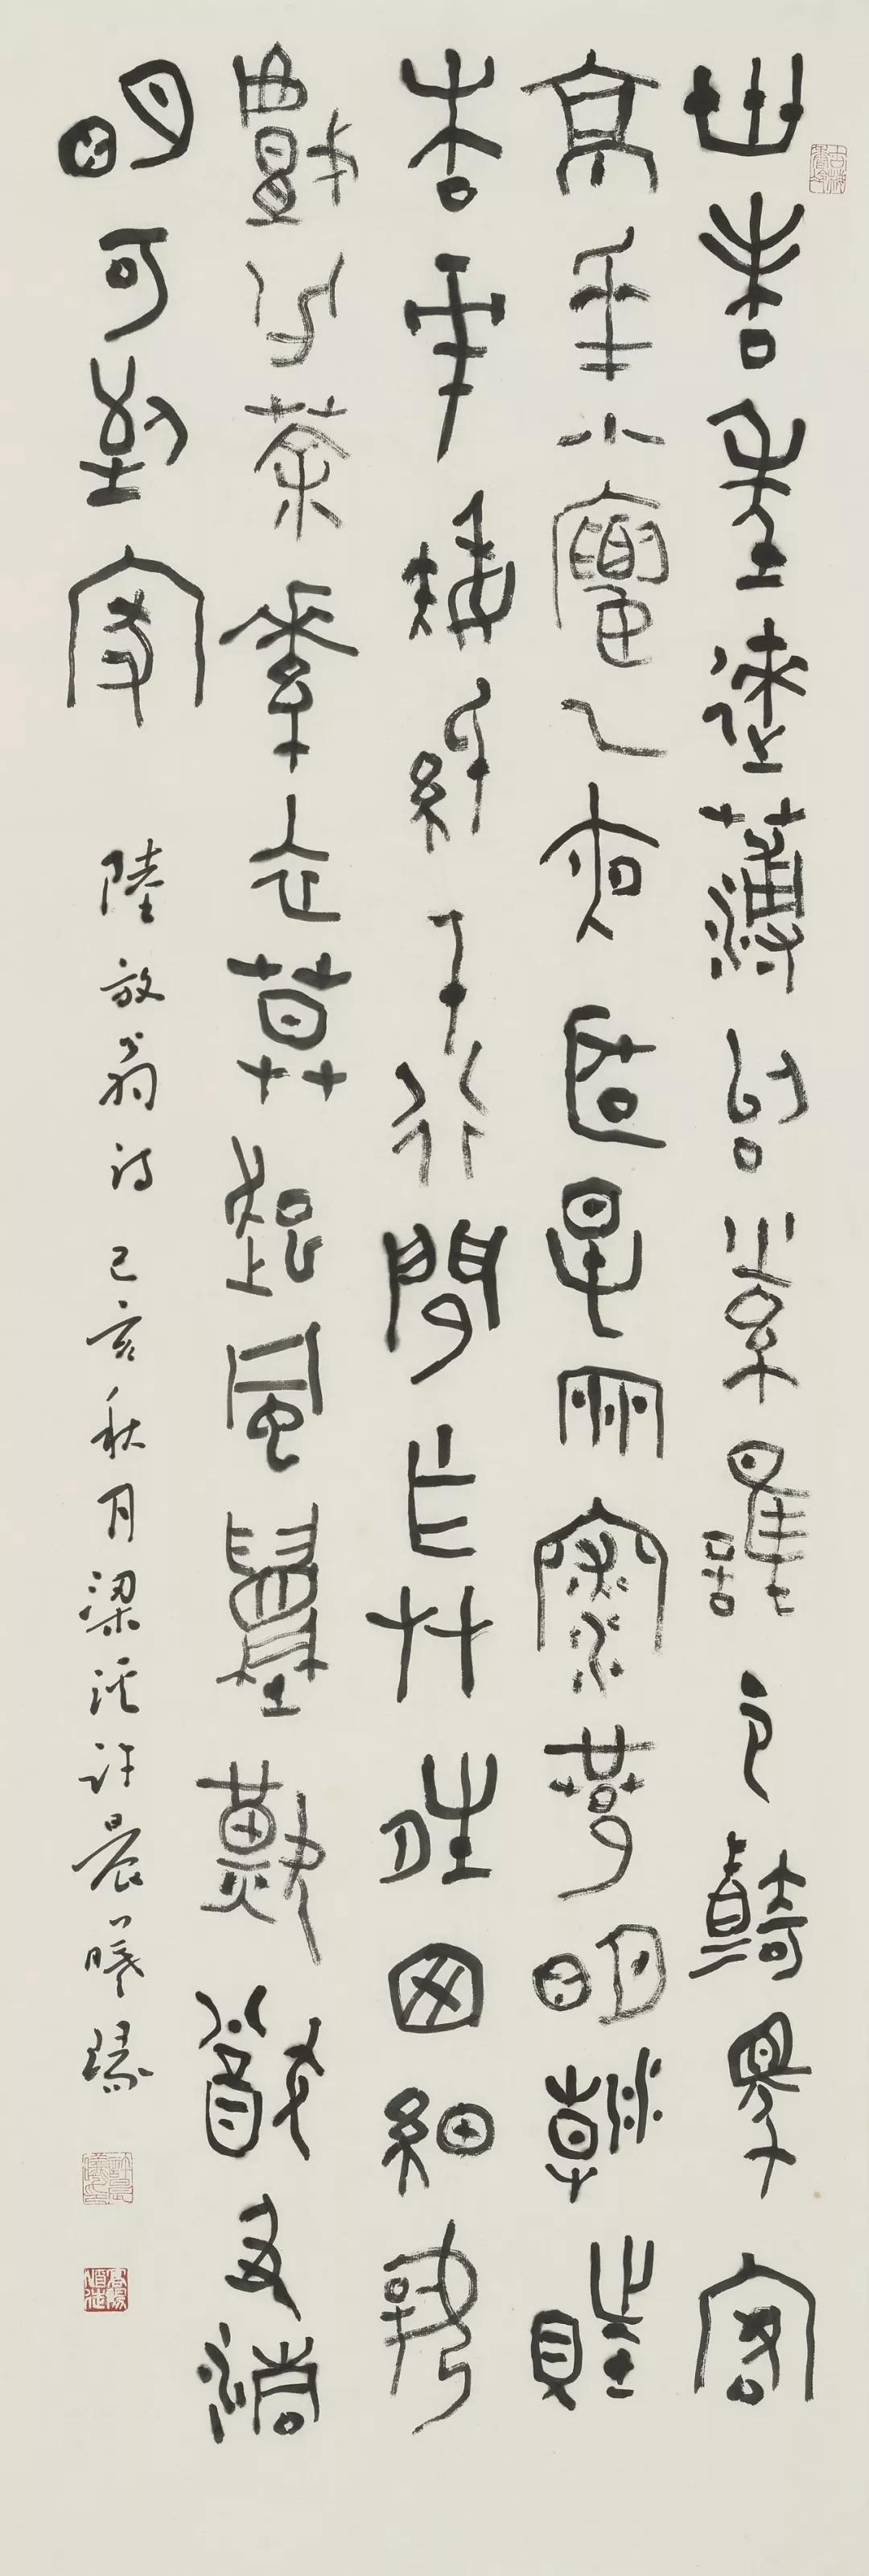 世味年來薄佀紗誰令騎馬客
京華小樓一夜聽春雨深巷明朝賣
杏華矮紙斜行閒作艸晴窗細乳
戲分茶素衣莫起風塵歎猶及清
明可到家
陸放翁詩 己亥秋月梁溪許晨曦